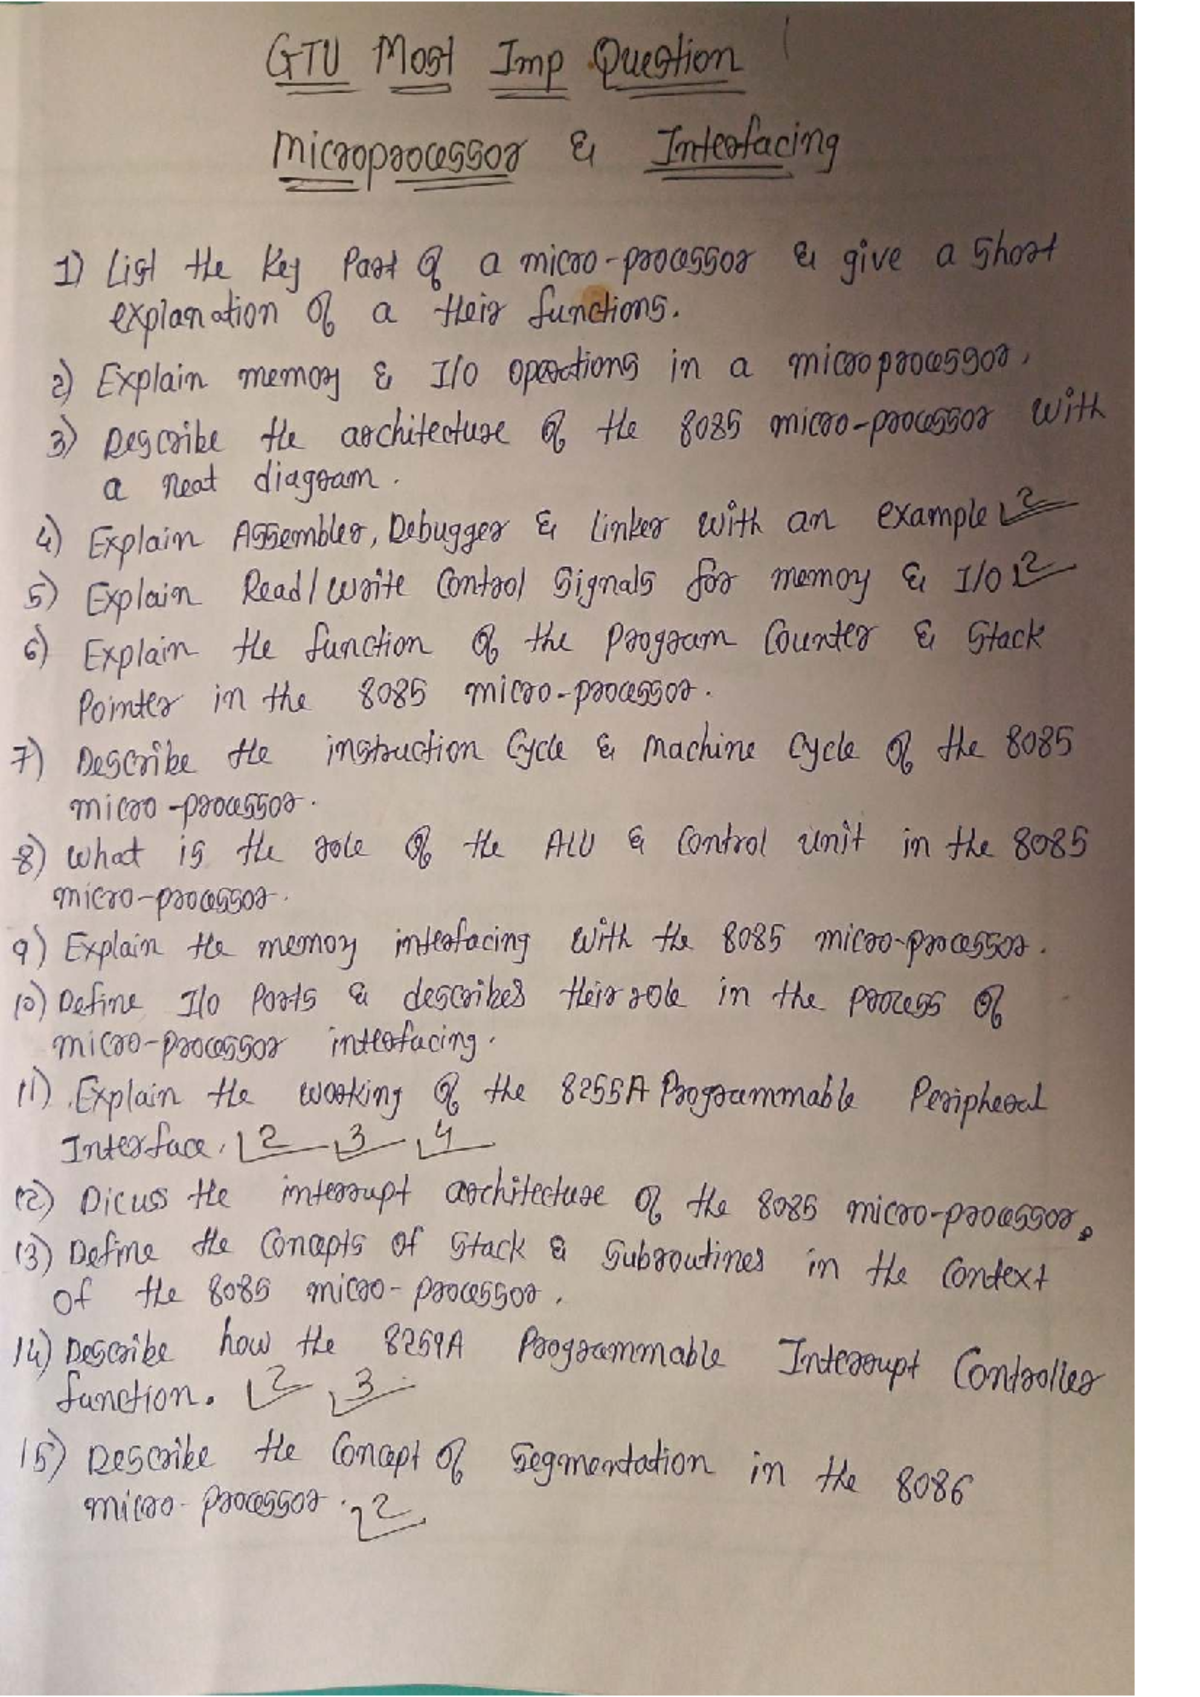 GTU Most Imp Question
Microprocessor & Interfacing
1) List the key Part of a micro-processor & give a short
explanation of a their functions.
2) Explain memoy & I/O operactions in a microprocessor.
3) Describe the architecture of the 8085 micro-processor with
a neat diagram.
4) Explain Assembler, Debugger & linker with an example 2
5) Explain Read/write Control Signals for memoy & I/O 2
6) Explain the function of the Program Counter & Stack
Pointer in the 8085 micro-processor.
7) Describe the instruction Cycle & Machine Cycle of the 8085
micro-processor.
8) what is the role of the ALU & Control unit in the 8085
micro-processor.
9) Explain the memoy interfacing with the 8085 micro-processor.
10) Define I/o Ports & describes their role in the process of
micro-processor interfacing.
11) Explain the working of the 8255A Programmable Peripheral
Interface. 2 3 4
12) Dicuss the interrupt architecture of the 8085 micro-processor.
13) Define the Concepts of Stack & Subroutines in the Context
of the 8085 micro-processor.
14) Describe how the 8259A Programmable Interrupt Controller
function. 2 3
15) Describe the Concept of Segmentation in the 8086
micro-processor. 2